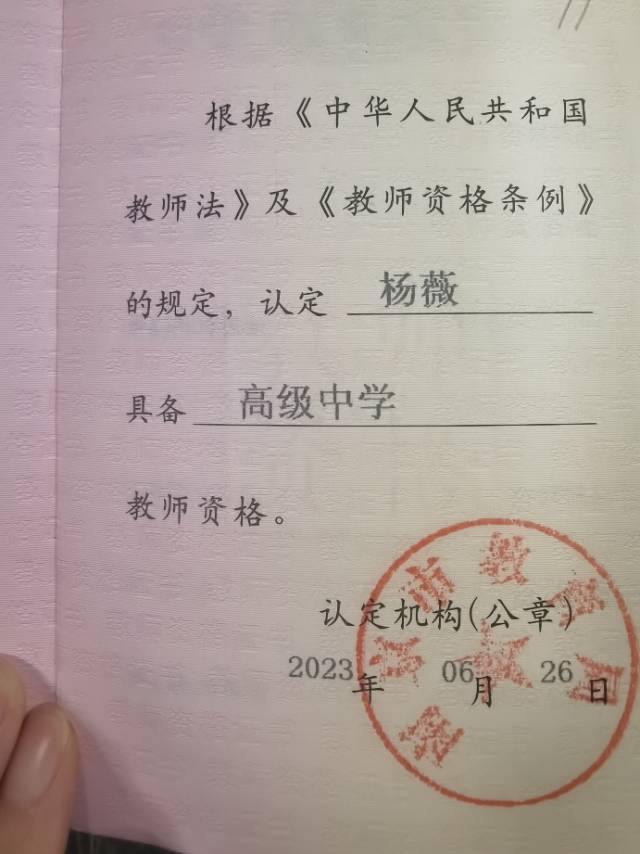 根据《中华人民共和国
教师法》及《教师资格条例》
的规定，认定 杨薇
具备 高级中学
教师资格。
认定机构(公章)
2023年 06月 26日